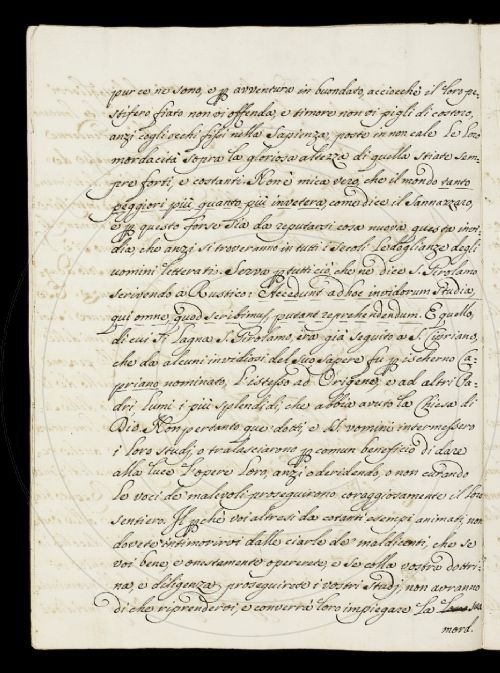 pur ce ne sono, e p avventura in buondato, acciocchè il loro pe-
stifero fiato non vi offenda, e timore non vi pigli di costoro,
anzi cogli occhi fissi nella Sapienza, poste in non cale le loro
mordacità sopra la gloriosa altezza di quella stiate sem-
pre forti, e costanti. Non è mica vero, che il mondo tanto
peggiori più quanto più invetera, come dice il Sannazzaro,
e p questo forse sia da reputarsi cosa nuova questa invi-
dia, che anzi si troveranno in tutti i secoli le doglianze degli
uomini letterati. Serva p tutti ciò, che ne dice S. Girolamo
scrivendo a Rustico: Accedunt ad hoc invidorum studia,
qui omne, quod scribimus, putant reprehendendum. E quello,
di cui si lagna S. Girolamo, era già seguito a S. Cipriano,
che da alcuni invidiosi del suo sapere fu p ischerno Ca-
priano nominato, l'istesso ad Origene, e ad altri Pa-
dri, lumi i più splendidi, che abbia avuto la Chiesa di
Dio. Non pertanto que' dotti, e SS. uomini intermessero
i loro studj, o tralasciarono p comun beneficio di dare
alla luce l'opere loro, anzi o deridendo, o non curando
le voci de' malevoli proseguirono coraggiosamente il loro
sentiero. Il p chè voi altresì da cotanti esempi animati, non
dovete intimorirvi dalle ciarle de' maldicenti, che se
voi bene, e onestamente opererete, e se colla vostra dottri-
na, e diligenza proseguirete i vostri studj, non avranno
di che riprendervi, e converrà loro impiegare la loro sua
mord.